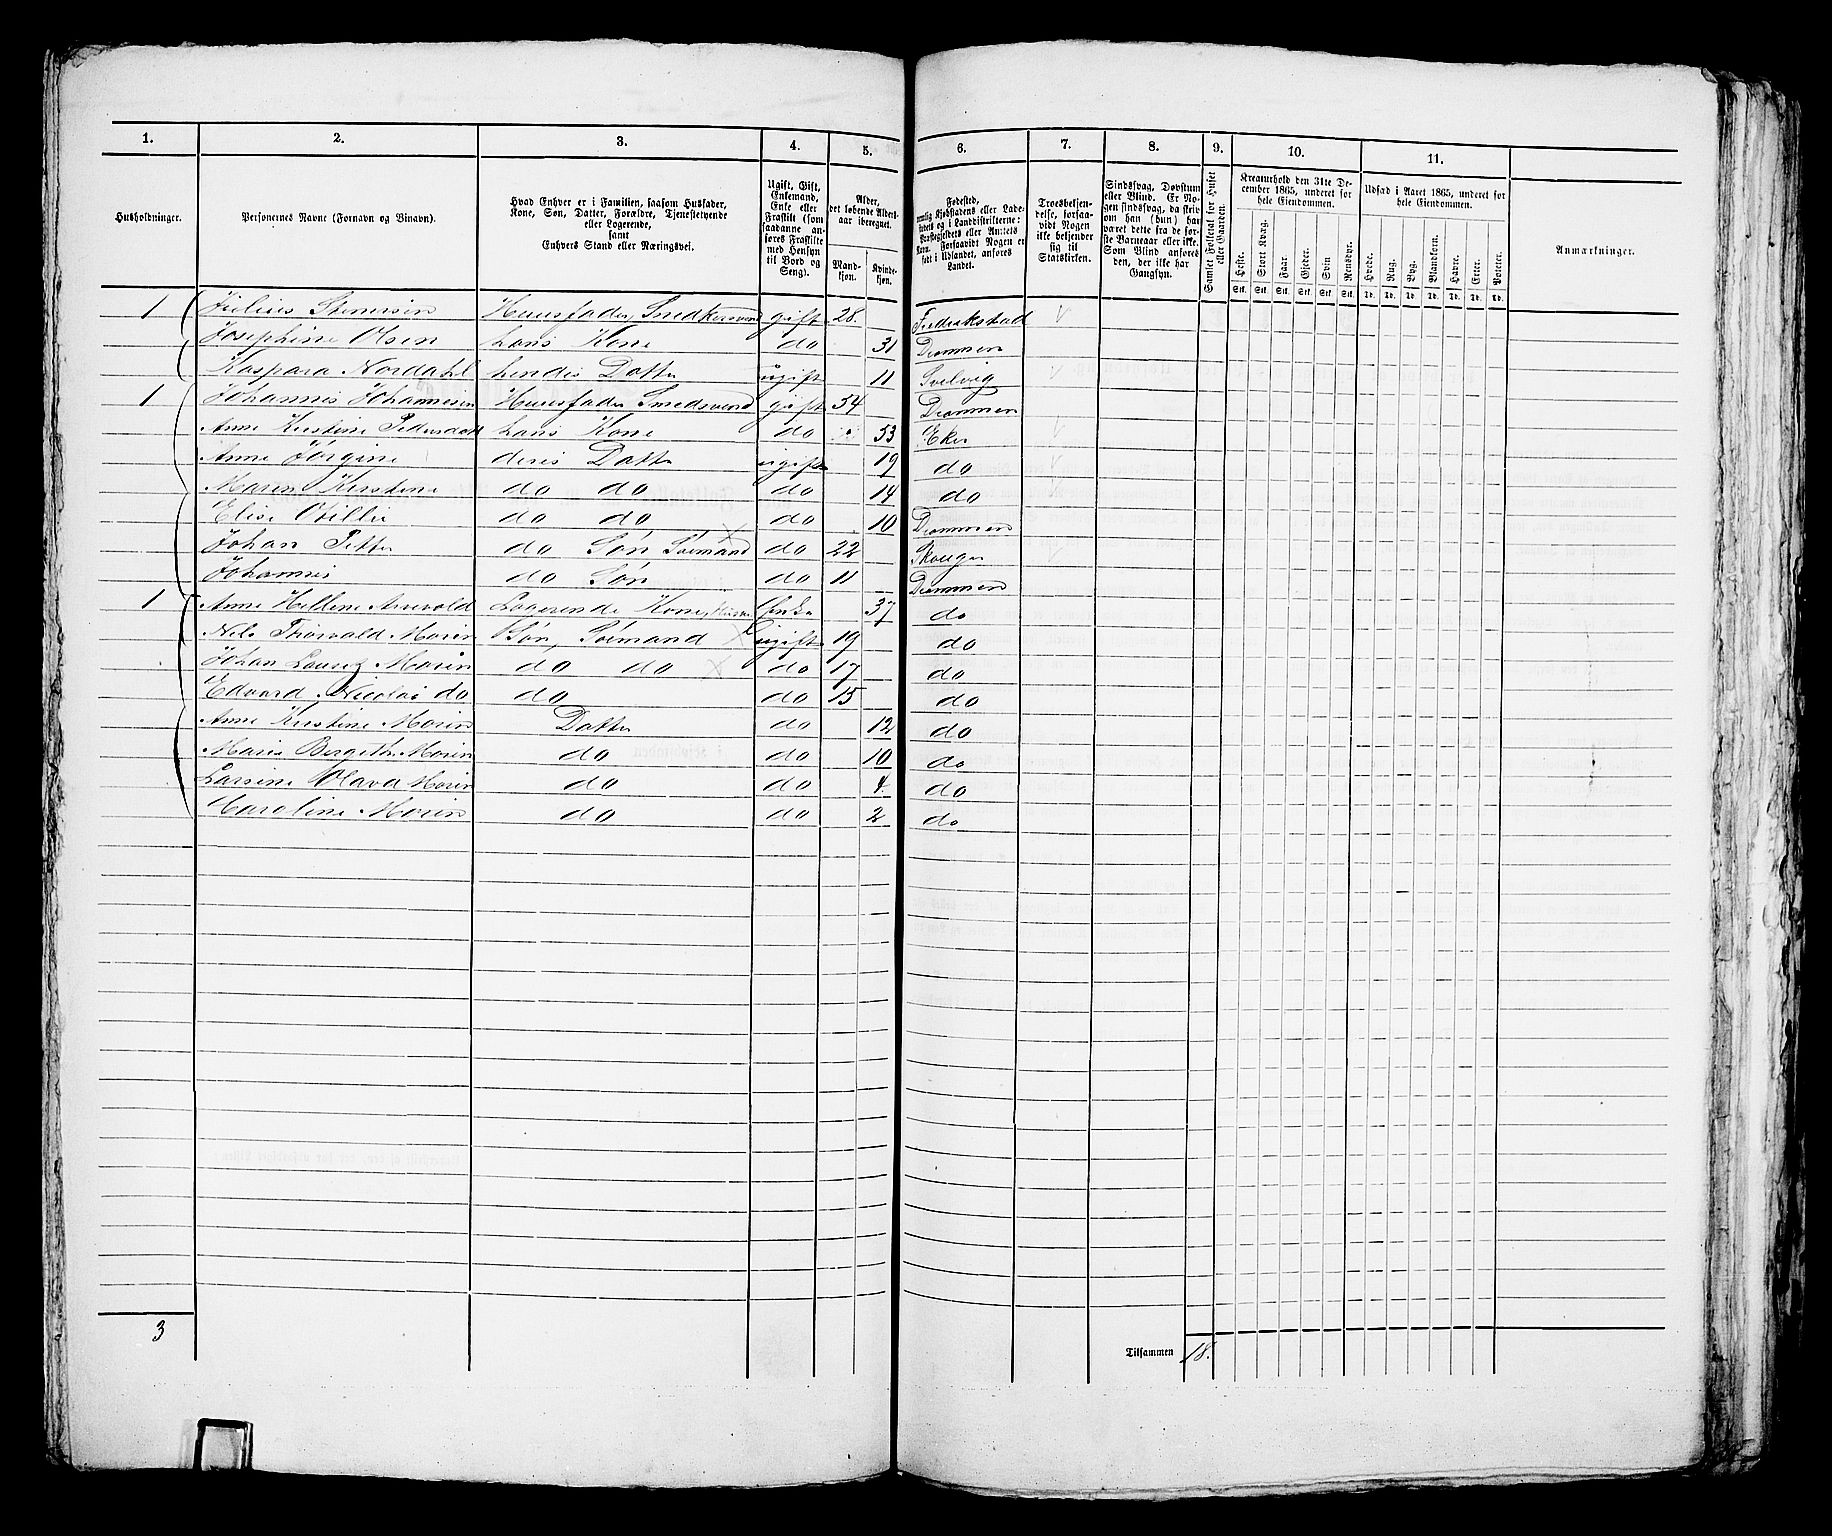 1. 2. 3. 4. 5. 6. 7. 8. 9. 10. 11.
Husholdninger.
Personernes Navne (Fornavn og Binavn).
Hvad Enhver er i Familien, saasom Husfader,
Kone, Søn, Datter, Forældre, Tjenestetyende
eller Logerende,
samt
Enhvers Stand eller Næringsvei.
Ugift, Gift,
Enkemand,
Enke eller
Fraskilt (som
saadanne an-
føres Fraskilte
med Hensyn
til Bord og
Seng).
Alder,
det løbende Alders-
aar iberegnet.
Mand-
kjøn.
Kvinde-
kjøn.
Fødested,
nemlig Kjøbstadens eller Lade-
stedets og i Landdistrikterne:
Præstegjeldets eller Amtets
Navn. Forsaavidt Nogen er
født i Udlandet, anføres
Landet.
Troesbekjen-
delse, forsaa-
vidt Nogen
ikke bekjender
sig til
Statskirken.
Sindssvag, Døvstum
eller Blind. Er No-
gen sindssvag, da skriv
om han (hun) har
været dette fra de før-
ste Barneaar eller ikke.
Som Blind ansøres
den, der ikke har
Gangsyn.
Samlet Folketal for Huset
eller Gaarden.
Kreaturhold den 31te De-
cember 1865, underet for
hele Eiendommen.
Heste. Stort Kvæg. Faar. Gjeder. Svin. Rensdyr.
Stk. Stk. Stk. Stk. Stk. Stk.
Udsæd i Aaret 1865, underet for
hele Eiendommen.
Hvede. Rug. Byg. Blandkorn. Havre. Erter. Poteter.
Td. Td. Td. Td. Td. Td. Td.
Anmærkninger.
1 Julius Stenersen Huusfader, Snedkersvend gift 28. Fredrikstad
Josephine Olsen hans Kone do 31 Drammen
Kaspara Nordahl hendes Datter ugift 11 Svelvig
1 Johannes Johannesen Huusfader Smedsvend gift 54 Drammen
Anne Kirstine Pedersdatt hans Kone do 53 Eker
Anne Jørgine deres Datter ugift 19 do
Maren Kirstine do do do 14 do
Elise Otillie do do do 10 Drammen
Johan Petter do Søn Sømand do 22 Skouger
Johannes do Søn do 11 Drammen
1 Anne Hellene Logerende Kone, Enke 37 do
Nils Thorvald Morin Søn, Sømand ugift 19 do
Johan Lauritz Morin do do do 17 do
Edvard Nicolai do do do 15 do
Anne Kirstine Morin Datter do 12 do
Maren Bergithe Morin do do 10 do
Larsine Olava Morin do do 4. do
Karoline Morin do do 2 do
3
Tilsammen 18.